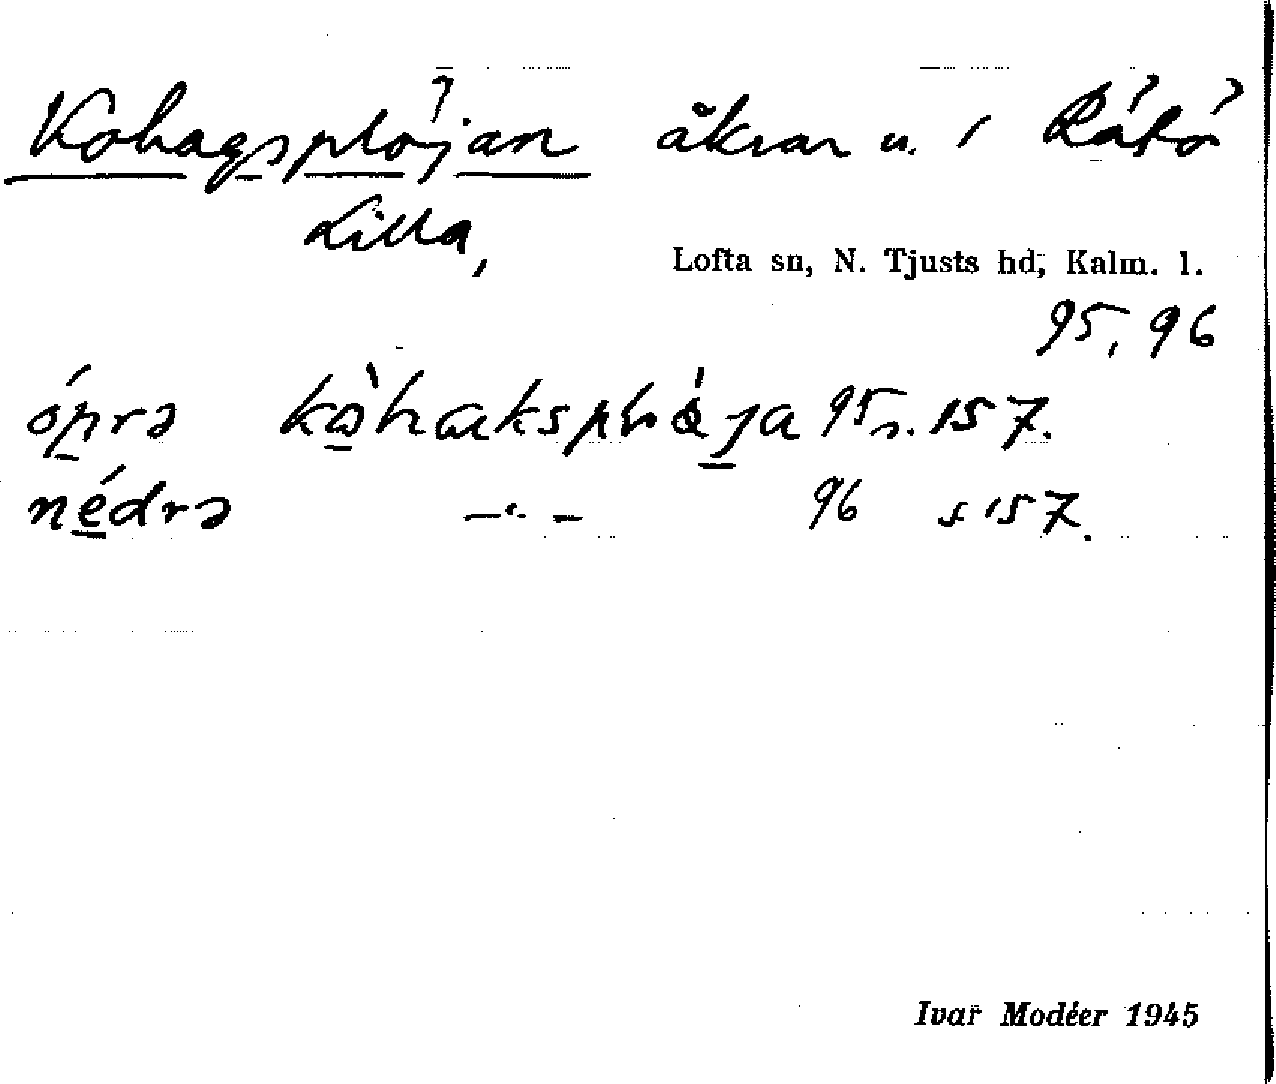 Kohagsplöjan åkrar u. i Råbö
Lilla,
Lofta sn, N. Tjusts hd, Kalm. l.
95, 96
ópra 95 s. 157.
nédrə —〃— 96 s 157.
Ivar Modéer 1945